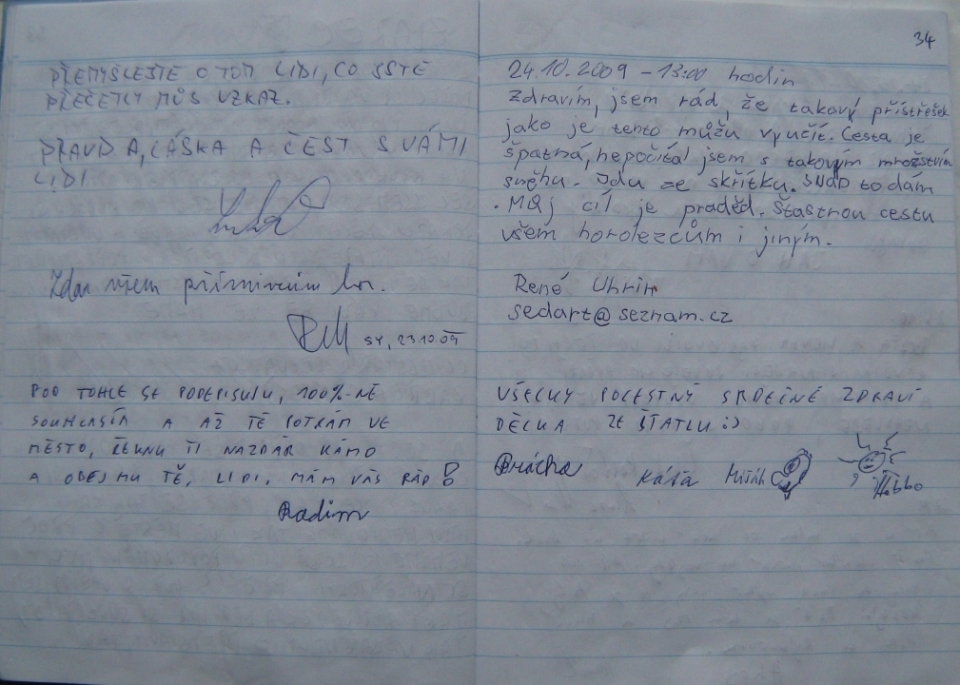 PŘEMÝŠLEJTE O TOM LIDI, CO JSTE
PŘEČETLY MŮJ VZKAZ.
PRAVDA, LÁSKA A ČEST S VÁMI
LIDI
Zdar všem příznivcům hor.
SY, 23 10 09
POD TOHLE SE PODEPISUJU, 100%-NĚ
SOUHLASÍM A AŽ TĚ POTKÁM VE
MĚSTO, ŘEKNU TI NAZDÁR KÁMO
A OBEJMU TĚ, LIDI, MÁM VÁS RÁD!
Radim
34
24.10.2009 - 13:00 hodin
Zdravím, jsem rád, že takový přístřešek
jako je tento můžu vyučít. Cesta je
špatná, nepočítal jsem s takovým množstvím
sněhu. Jdu ze skřítku. SNAD to dám
. Můj cíl je praděd. Šťastnou cestu
všem horolezcům i jiným.
René Uhrin
sedart@seznam.cz
VŠECKY POCESTNÝ SRDEČNĚ ZDRAVÍ
DĚCKA ZE ŠTATLU :)
Brácha Káťa Mišák Habbo